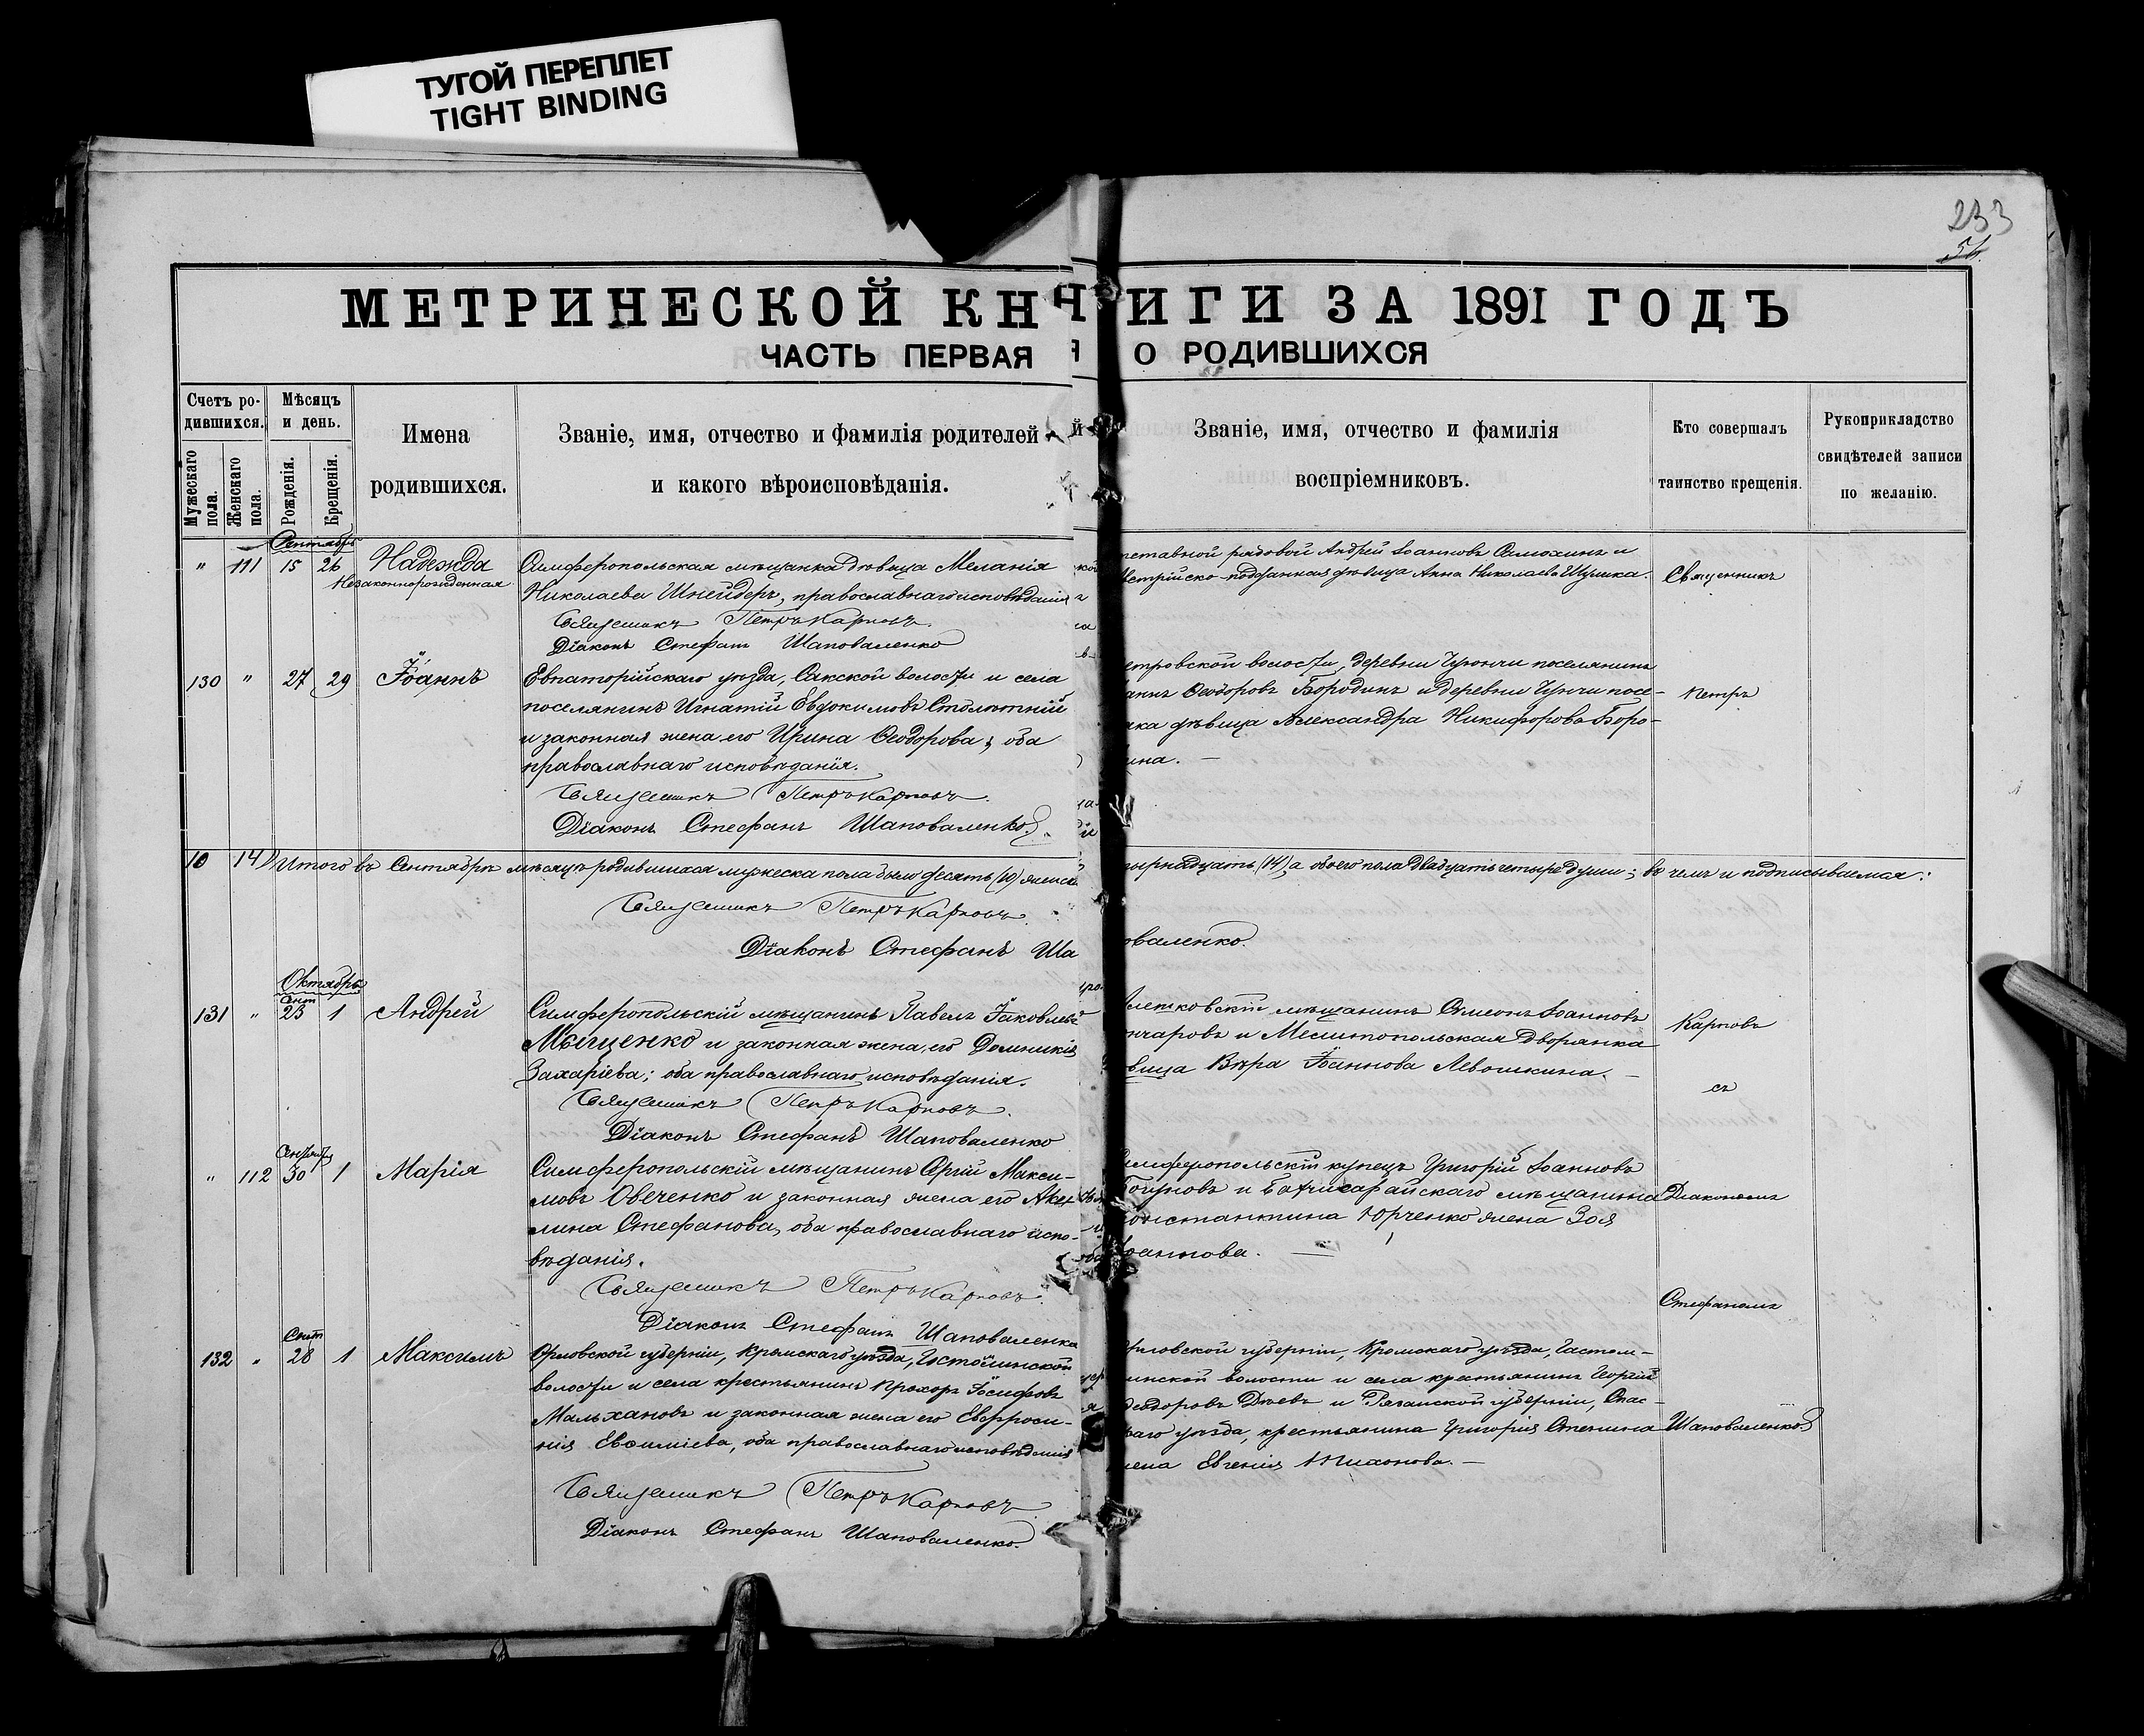 ТУГОЙ ПЕРЕПЛЕТ
TIGHT BINDING
233
54
МЕТРИЧЕСКОЙ КНИГИ ЗА 1891 ГОДЪ
ЧАСТЬ ПЕРВАЯ О РОДИВШИХСЯ
Счетъ ро-
дившихся.
Мѣсяцъ
и день.
Мужескаго
пола.
Женскаго
пола.
Рожденія.
Крещенія.
Имена
родившихся.
Званіе, имя, отчество и фамилія родителей
и какого вѣроисповѣданія.
Званіе, имя, отчество и фамилія
воспріемниковъ.
Кто совершалъ
таинство крещенія.
Рукоприкладство
свидѣтелей записи
по желанію.
Сентябрь
" 111 15 26 Надежда
Незаконнорожденная
Симферопольская мѣщанка дѣвица Меланія
Николаева Шнейдеръ, православнаго исповѣданія
Священникъ Петръ Карповъ.
Діаконъ Стефанъ Шаповаленко
ставной рядовой Андрей Іоанновъ Самохинъ и
стрійско-подданная дѣвица Анна Николаева
Священникъ
130 " 27 29 Іоаннъ
Евпаторійскаго уѣзда, Сакской волости и села
поселянинъ Игнатій Евдокимовъ Столѣтній
и законная жена его Ирина Ѳеодорова; оба
православнаго исповѣданія.
Священникъ Петръ Карповъ.
Діаконъ Стефанъ Шаповаленко.
етровской волости, деревни поселянинъ
аннъ Ѳеодоровъ Бородинъ и деревни посе-
нка дѣвица Александра Никифорова Боро-
ина. —
Петръ
10 14 Итого въ Сентябрѣ мѣсяцѣ родившихся мужеска пола было десять (10) женска
тырнадцать (14), а обоего пола двадцать четыре души; въ чемъ и подписываемся:
Священникъ Петръ Карповъ.
Діаконъ Стефанъ Шаповаленко.
Октябрь
Сент
131 " 23 1 Андрей
Симферопольскій мѣщанинъ Павелъ Іаковлевъ
Мищенко и законная жена его Домникія
Захаріева; оба православнаго исповѣданія.
Священникъ Петръ Карповъ.
Діаконъ Стефанъ Шаповаленко
лешковскій мѣщанинъ Симеонъ Іоанновъ
нчаровъ и Мелитопольская дворянка
вица Вѣра Іоаннова Левошкина. —
Карповъ
съ
Сентября
" 112 30 1 Марія
Симферопольскій мѣщанинъ Сергій Макси-
мовъ Овеченко и законная жена его Аки-
лина Стефанова, оба православнаго испо-
вѣданія.
Священникъ Петръ Карповъ.
Діаконъ Стефанъ Шаповаленко
имферопольскій купецъ Григорій Іоанновъ
Богуновъ и Бахчисарайскаго мѣщанина
онстантина Юрченко жена Зоя
оаннова. —
Діакономъ
Стефаномъ
Сент
132 " 28 1 Максимъ
Орловской губерніи, Кромскаго уѣзда, Гостомлинской
волости и села крестьянинъ Прохоръ Іосифовъ
Мальхановъ и законная жена его Евфроси-
нія Евѳиміева, оба православнаго исповѣданія
Священникъ Петръ Карповъ.
Діаконъ Стефанъ Шаповаленко.
рловской губерніи, Кромскаго уѣзда, Гостом-
линской волости и села крестьянинъ Георгій
Ѳеодоровъ и Рязанской губерніи, Спас-
каго уѣзда, крестьянина Григорія Стенина
жена Евгенія Тихонова. —
Шаповаленко